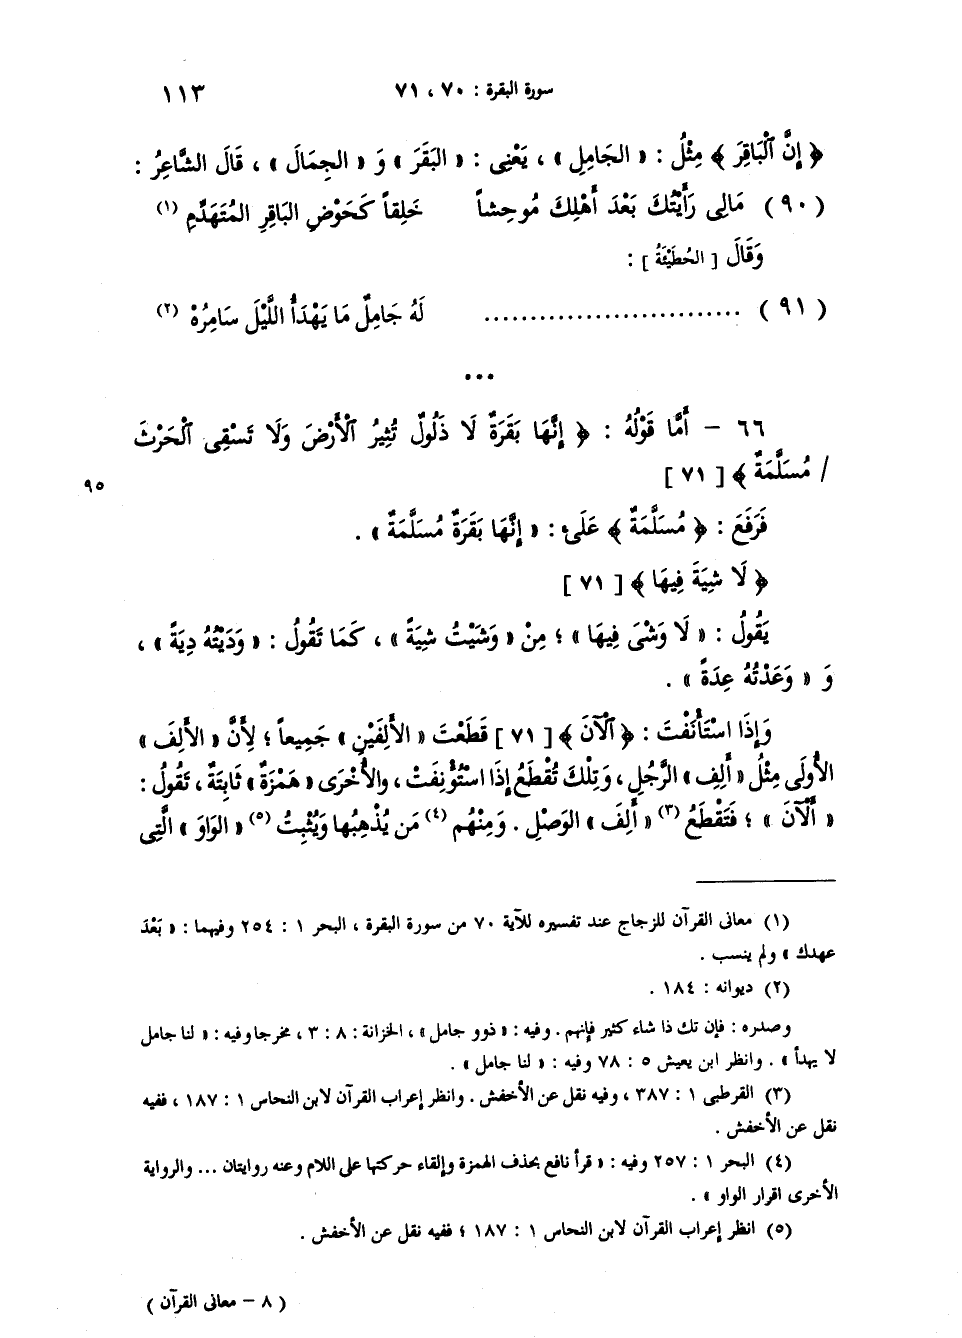 سورة البقرة : ٧٠ ، ٧١ ١١٣
﴿ إِنَّ ٱلْبَاقِرَ ﴾ مِثْلُ : « الجَامِلِ » ، يَعْنِى : « البَقَرَ » وَ « الجِمَالَ » ، قَالَ الشَّاعِرُ :
( ٩٠ ) مَالِى رَأَيْتُكَ بَعْدَ أَهْلِكَ مُوحِشاً خَلِقاً كَحَوْضِ البَاقِرِ المُتَهَدِّمِ (١)
وَقَالَ [ الحُطَيْئَةُ ] :
( ٩١ ) ............................ لَهُ جَامِلٌ مَا يَهْدَأُ اللَّيْلَ سَامِرُهْ (٢)
•••
٦٦ – أَمَّا قَوْلُهُ : ﴿ إِنَّهَا بَقَرَةٌ لَا ذَلُولٌ تُثِيرُ ٱلْأَرْضَ وَلَا تَسْقِى ٱلْحَرْثَ
/ مُسَلَّمَةٌ ﴾ [ ٧١ ]
٩٥
فَرَفَعَ : ﴿ مُسَلَّمَةٌ ﴾ عَلَىٰ : « إِنَّهَا بَقَرَةٌ مُسَلَّمَةٌ » .
﴿ لَا شِيَةَ فِيهَا ﴾ [ ٧١ ]
يَقُولُ : « لَا وَشْىَ فِيهَا » ؛ مِنْ « وَشَيْتُ شِيَةً » ، كَمَا تَقُولُ : « وَدَيْتُهُ دِيَةً » ،
وَ « وَعَدْتُهُ عِدَةً » .
وَإِذَا اسْتَأْنَفْتَ : ﴿ ٱلْآنَ ﴾ [ ٧١ ] قَطَعْتَ « الأَلِفَيْنِ » جَمِيعاً ؛ لِأَنَّ « الأَلِفَ »
الأُولَى مِثْلُ « أَلِفِ » الرَّجُلِ ، وَتِلْكَ تُقْطَعُ إِذَا اسْتُؤْنِفَتْ ، والأُخْرَى « هَمْزَةٌ » ثَابِتَةٌ ، تَقُولُ :
« أَلْآنَ » ؛ فَتَقْطَعُ (٣) « أَلِفَ » الوَصْلِ . وَمِنْهُم (٤) مَن يُذْهِبُها وَيُثْبِتُ (٥) « الوَاوَ » الَّتِى
(١) معانى القرآن للزجاج عند تفسيره للآية ٧٠ من سورة البقرة ، البحر ١ : ٢٥٤ وفيهما : « بَعْدَ
عهدك » ولم ينسب .
(٢) ديوانه : ١٨٤ .
وصدره : فإن تك ذا شاء كثير فإنهم . وفيه : « ذوو جامل » ، الخزانة : ٨ : ٣ ، مخرجا وفيه : « لنا جامل
لا يهدأ » . وانظر ابن يعيش ٥ : ٧٨ وفيه : « لنا جامل » .
(٣) القرطبى ١ : ٣٨٧ ، وفيه نقل عن الأخفش . وانظر إعراب القرآن لابن النحاس ١ : ١٨٧ ، ففيه
نقل عن الأخفش .
(٤) البحر ١ : ٢٥٧ وفيه : « قرأ نافع بحذف الهمزة وإلقاء حركتها على اللام وعنه روايتان ... والرواية
الأخرى اقرار الواو » .
(٥) انظر إعراب القرآن لابن النحاس ١ : ١٨٧ ؛ ففيه نقل عن الأخفش .
( ٨ – معانى القرآن )